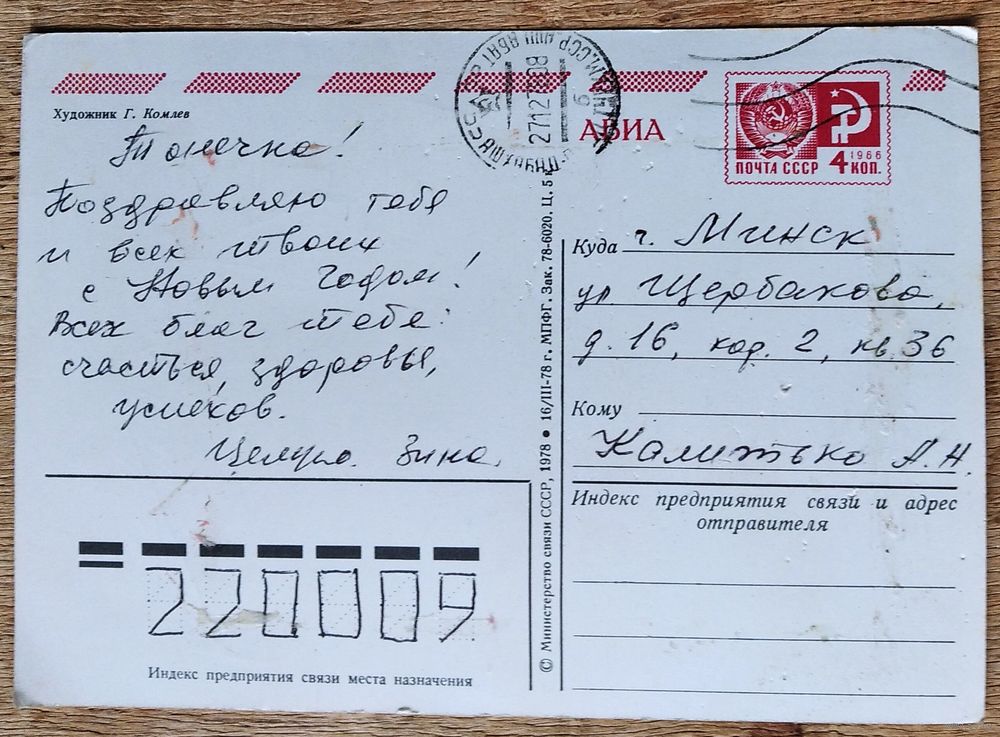 Художник Г. Комлев
Танечка!
Поздравляю тебя
и всех твоих
с Новым Годом!
Всех благ тебе:
счастья, здоровья,
успехов.
Целую. Зина.
220009
Индекс предприятия связи места назначения
© Министерство связи СССР, 1978 • 16/III-78 г. МПФГ. Зак. 78-6020. Ц. 5 к
АШХАБАД
27127808
АВИА
1966
ПОЧТА СССР 4 КОП.
Куда г. Минск
ул Щербакова,
д. 16, кор. 2, кв. 36
Кому
Калитько А.Н.
Индекс предприятия связи и адрес
отправителя